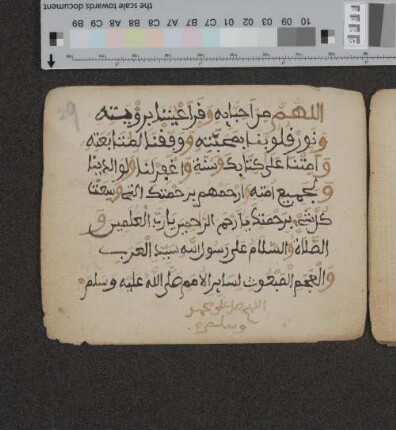 the scale towards document
10 09 03 02 01 C7 B7 A7 C8 B8 A8 C9 B9
29
اللهم من احبابه وقر اعيننا برويته
ونور قلوبنا بمحبته ووفقنا لمتابعته
وامتنا على كتابك وسنة واغفر لنا ولوالدينا
ولجميع امته وارحمهم برحمتك التي وسعت
كل شيء برحمتك يا ارحم الرحمين يا رب العلمين و
الصلاة والسلام على رسول الله سيد العرب
والعجم المبعوث لساير الامم صلى الله عليه وسلم
اللهم صل على محمد
وسلم